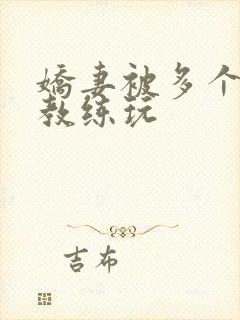 娇妻被多个
教练玩
吉布